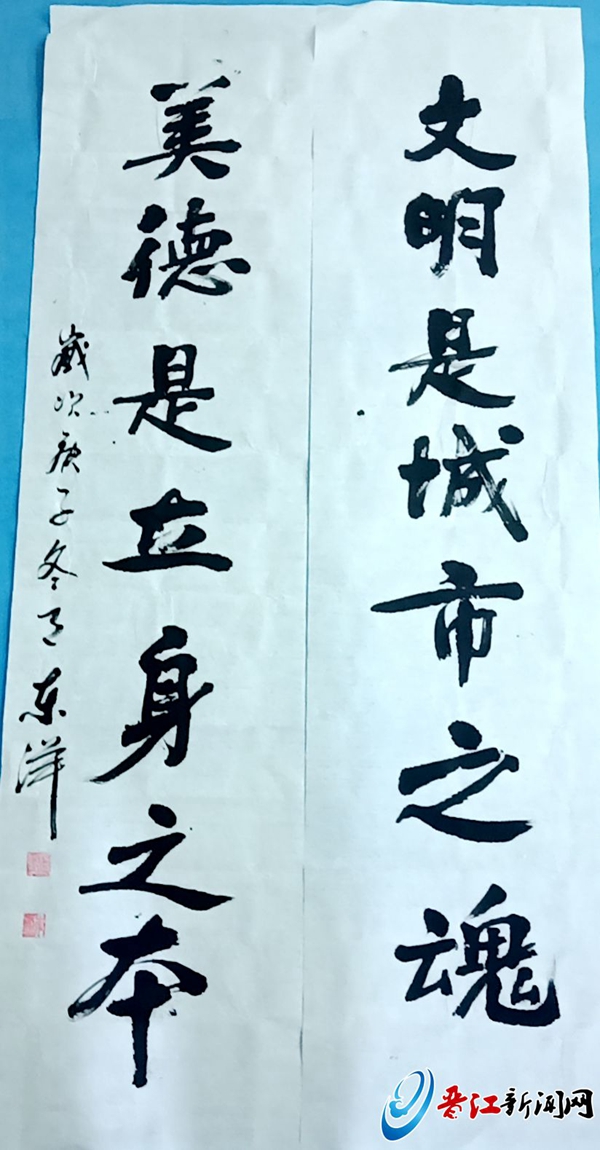 文明是城市之魂
美德是立身之本
歲次庚子冬月东洋
晋江新闻网